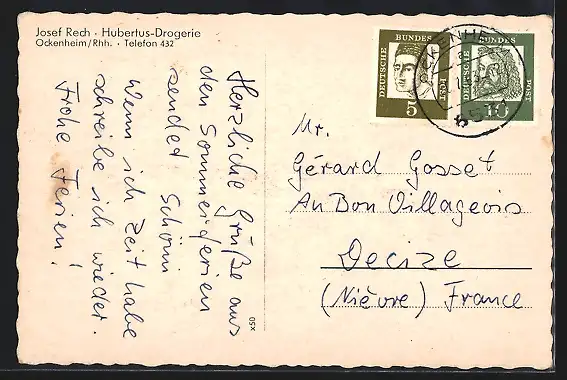 Josef Rech · Hubertus-Drogerie
Ockenheim/Rhh. · Telefon 432
Herzliche Grüße aus
den Sommerferien
sendet Schöni
Wenn ich Zeit habe
schreibe ich wieder.
Frohe Ferien!
DEUTSCHE BUNDESPOST
5
DEUTSCHE BUNDESPOST
10
OCKENHEIM
6531
Mr.
Gérard Gosset
Au Bon Villageois
Decize
(Nièvre) France
x50